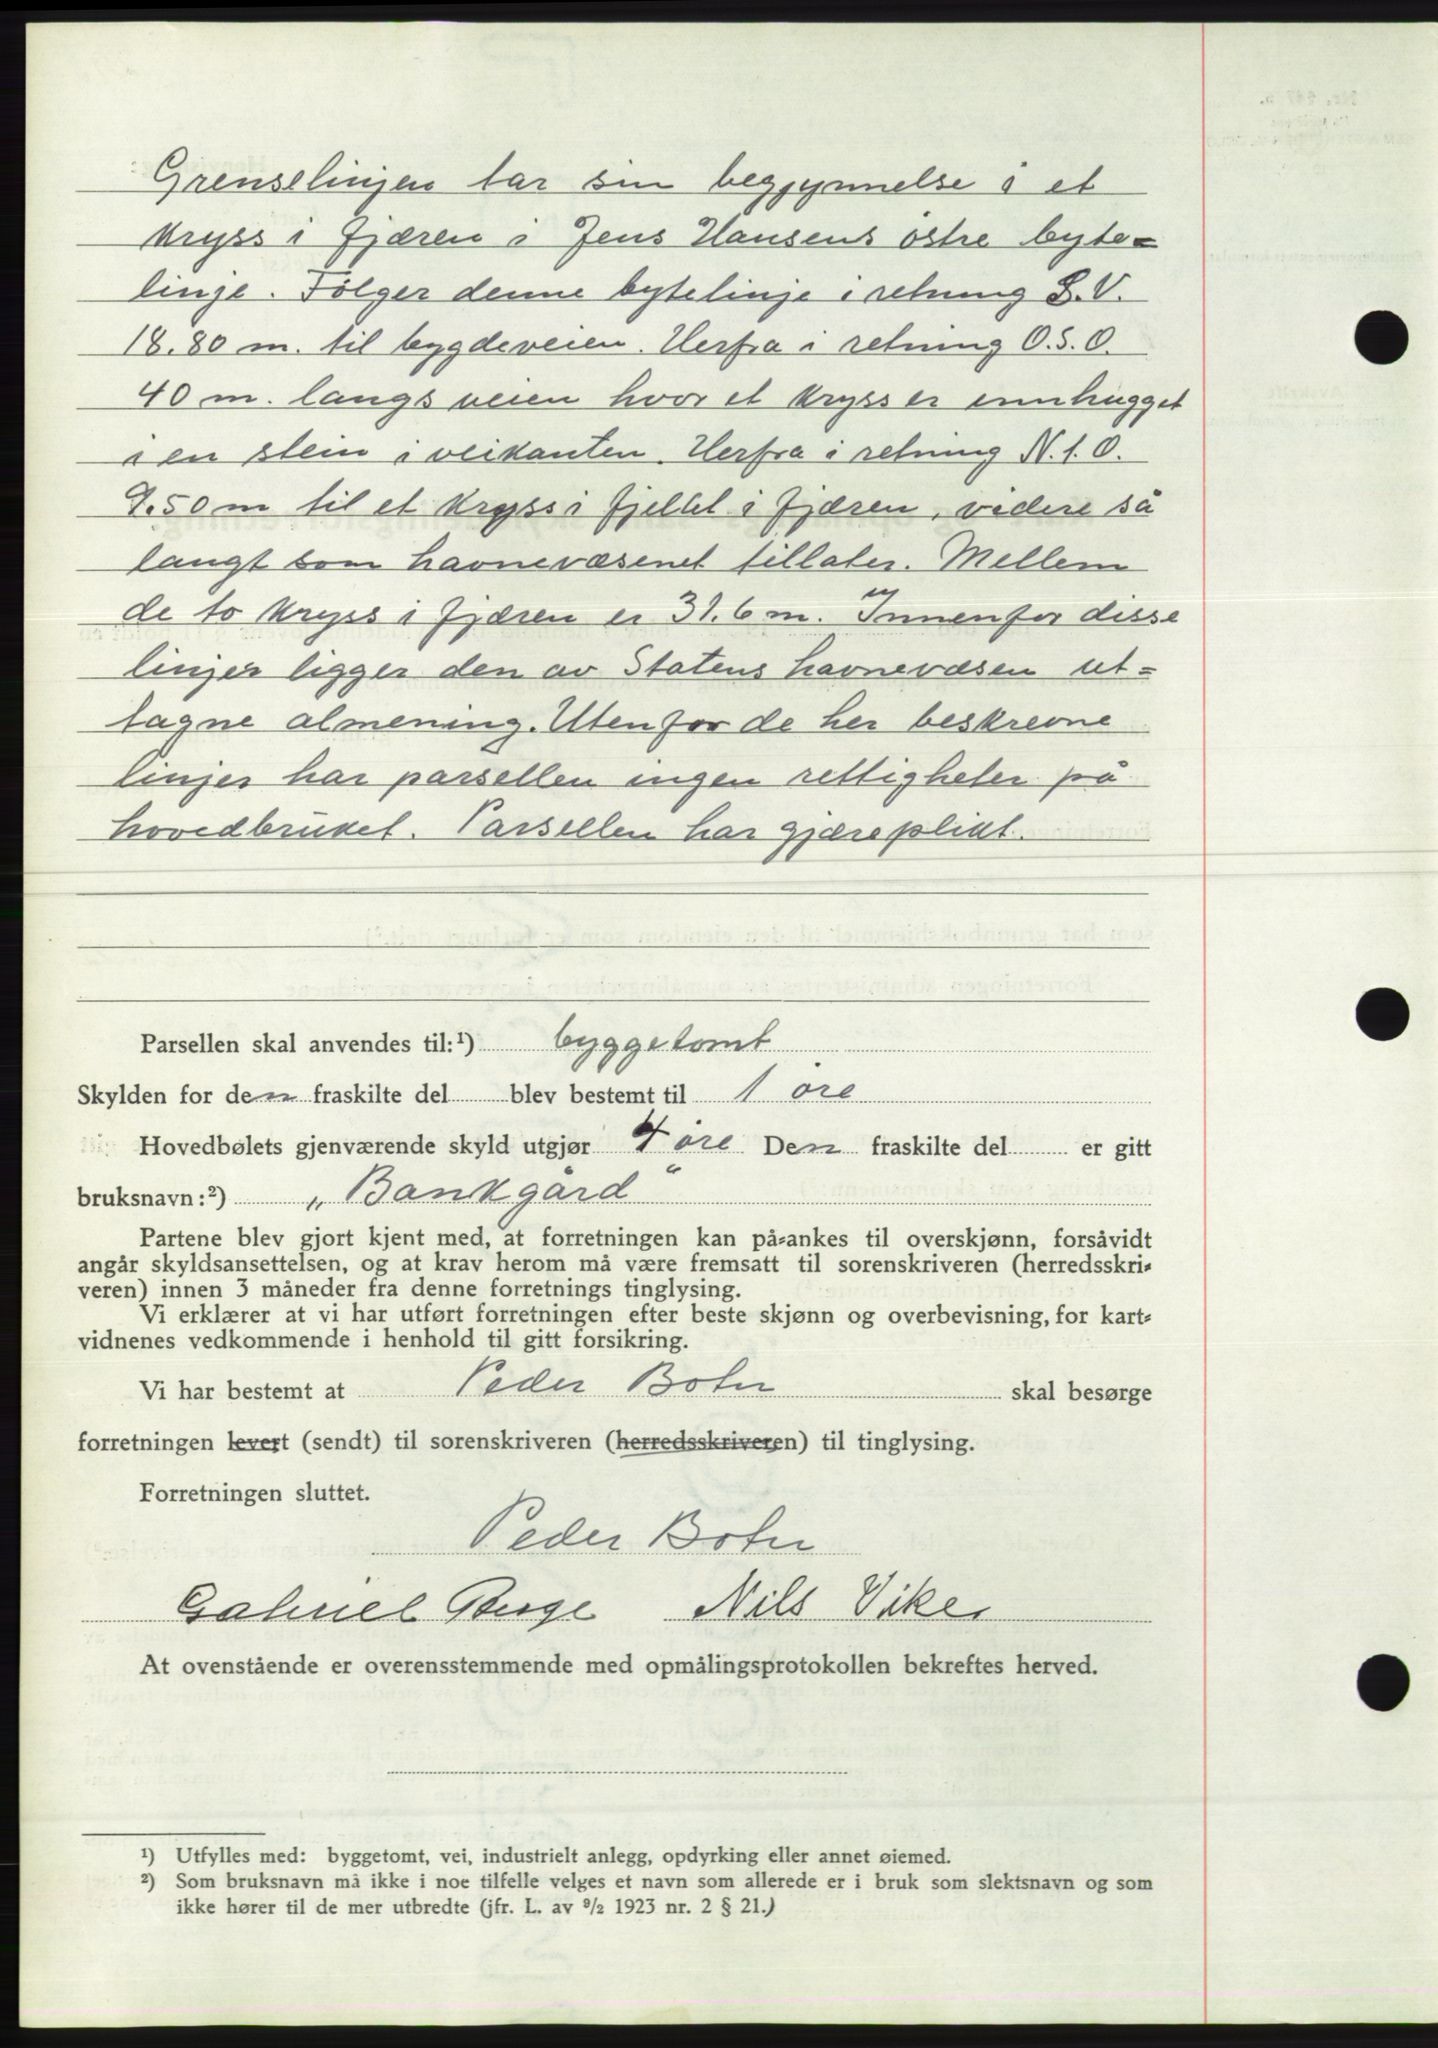 Grenselinjen tar sin begynnelse i et
kryss i fjæren i Jens Hansens östre byte=
linje. Følger denne bytelinje i retning S.V.
18.80 m. til bygdeveien. Herfra i retning O.S.O.
40 m. langs veien hvor et kryss er innhugget
i en stein i veikanten. Herfra i retning N.t.O.
9.50 m til et kryss i fjeldet i fjæren, videre så
langt som havnevæsenet tillater. Mellem
de to kryss i fjæren er 31.6 m. Innenfor disse
linjer ligger den av Statens havnevæsen ut=
tagne almening. Utenfor de her beskrevne
linjer har parsellen ingen rettigheter på
hovedbruket. Parsellen har gjæreplikt.
Parsellen skal anvendes til:¹) byggetomt
Skylden for den fraskilte del blev bestemt til 1 öre
Hovedbølets gjenværende skyld utgjør 4 öre Den fraskilte del er gitt
bruksnavn:²) „Bankgård"
Partene blev gjort kjent med, at forretningen kan på=ankes til overskjønn, forsåvidt
angår skyldsansettelsen, og at krav herom må være fremsatt til sorenskriveren (herredsskri=
veren) innen 3 måneder fra denne forretnings tinglysing.
Vi erklærer at vi har utført forretningen efter beste skjønn og overbevisning, for kart=
vidnenes vedkommende i henhold til gitt forsikring.
Vi har bestemt at Peder Botn skal besørge
forretningen levert (sendt) til sorenskriveren (herredsskriveren) til tinglysing.
Forretningen sluttet.
Peder Botn
Gabriel Berge Nils Vike
At ovenstående er overensstemmende med opmålingsprotokollen bekreftes herved.
¹) Utfylles med: byggetomt, vei, industrielt anlegg, opdyrking eller annet øiemed.
²) Som bruksnavn må ikke i noe tilfelle velges et navn som allerede er i bruk som slektsnavn og som
ikke hører til de mer utbredte (jfr. L. av 9/2 1923 nr. 2 § 21.)